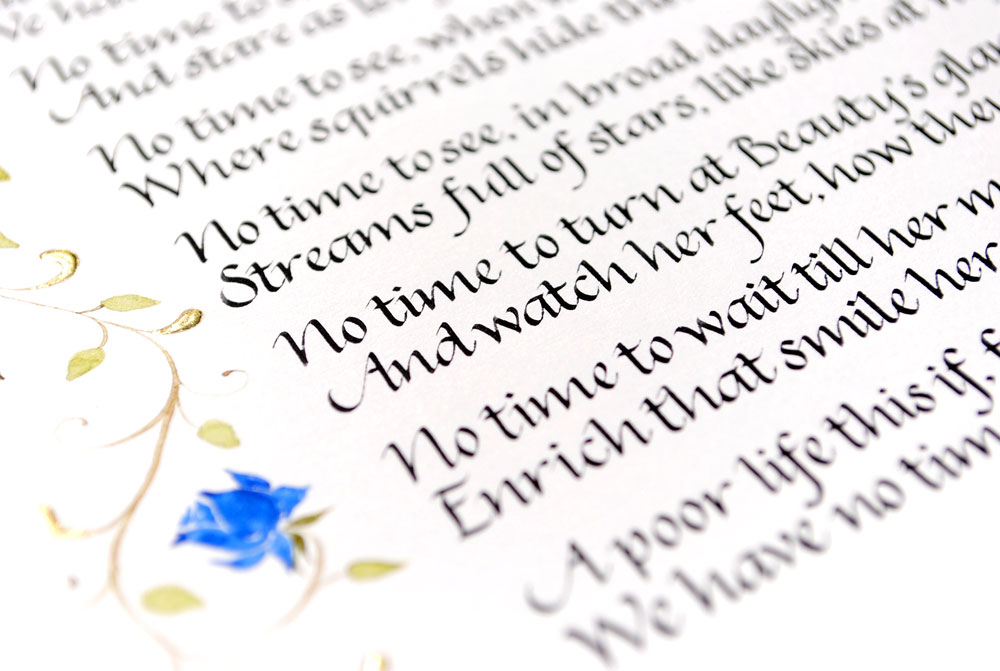 We have
No time to
And stare as
No time to see, when
Where squirrels hide
No time to see, in broad daylight
Streams full of stars, like skies at
No time to turn at Beauty's
And watch her feet, how they
No time to wait till her
Enrich that smile her
A poor life this if,
We have no